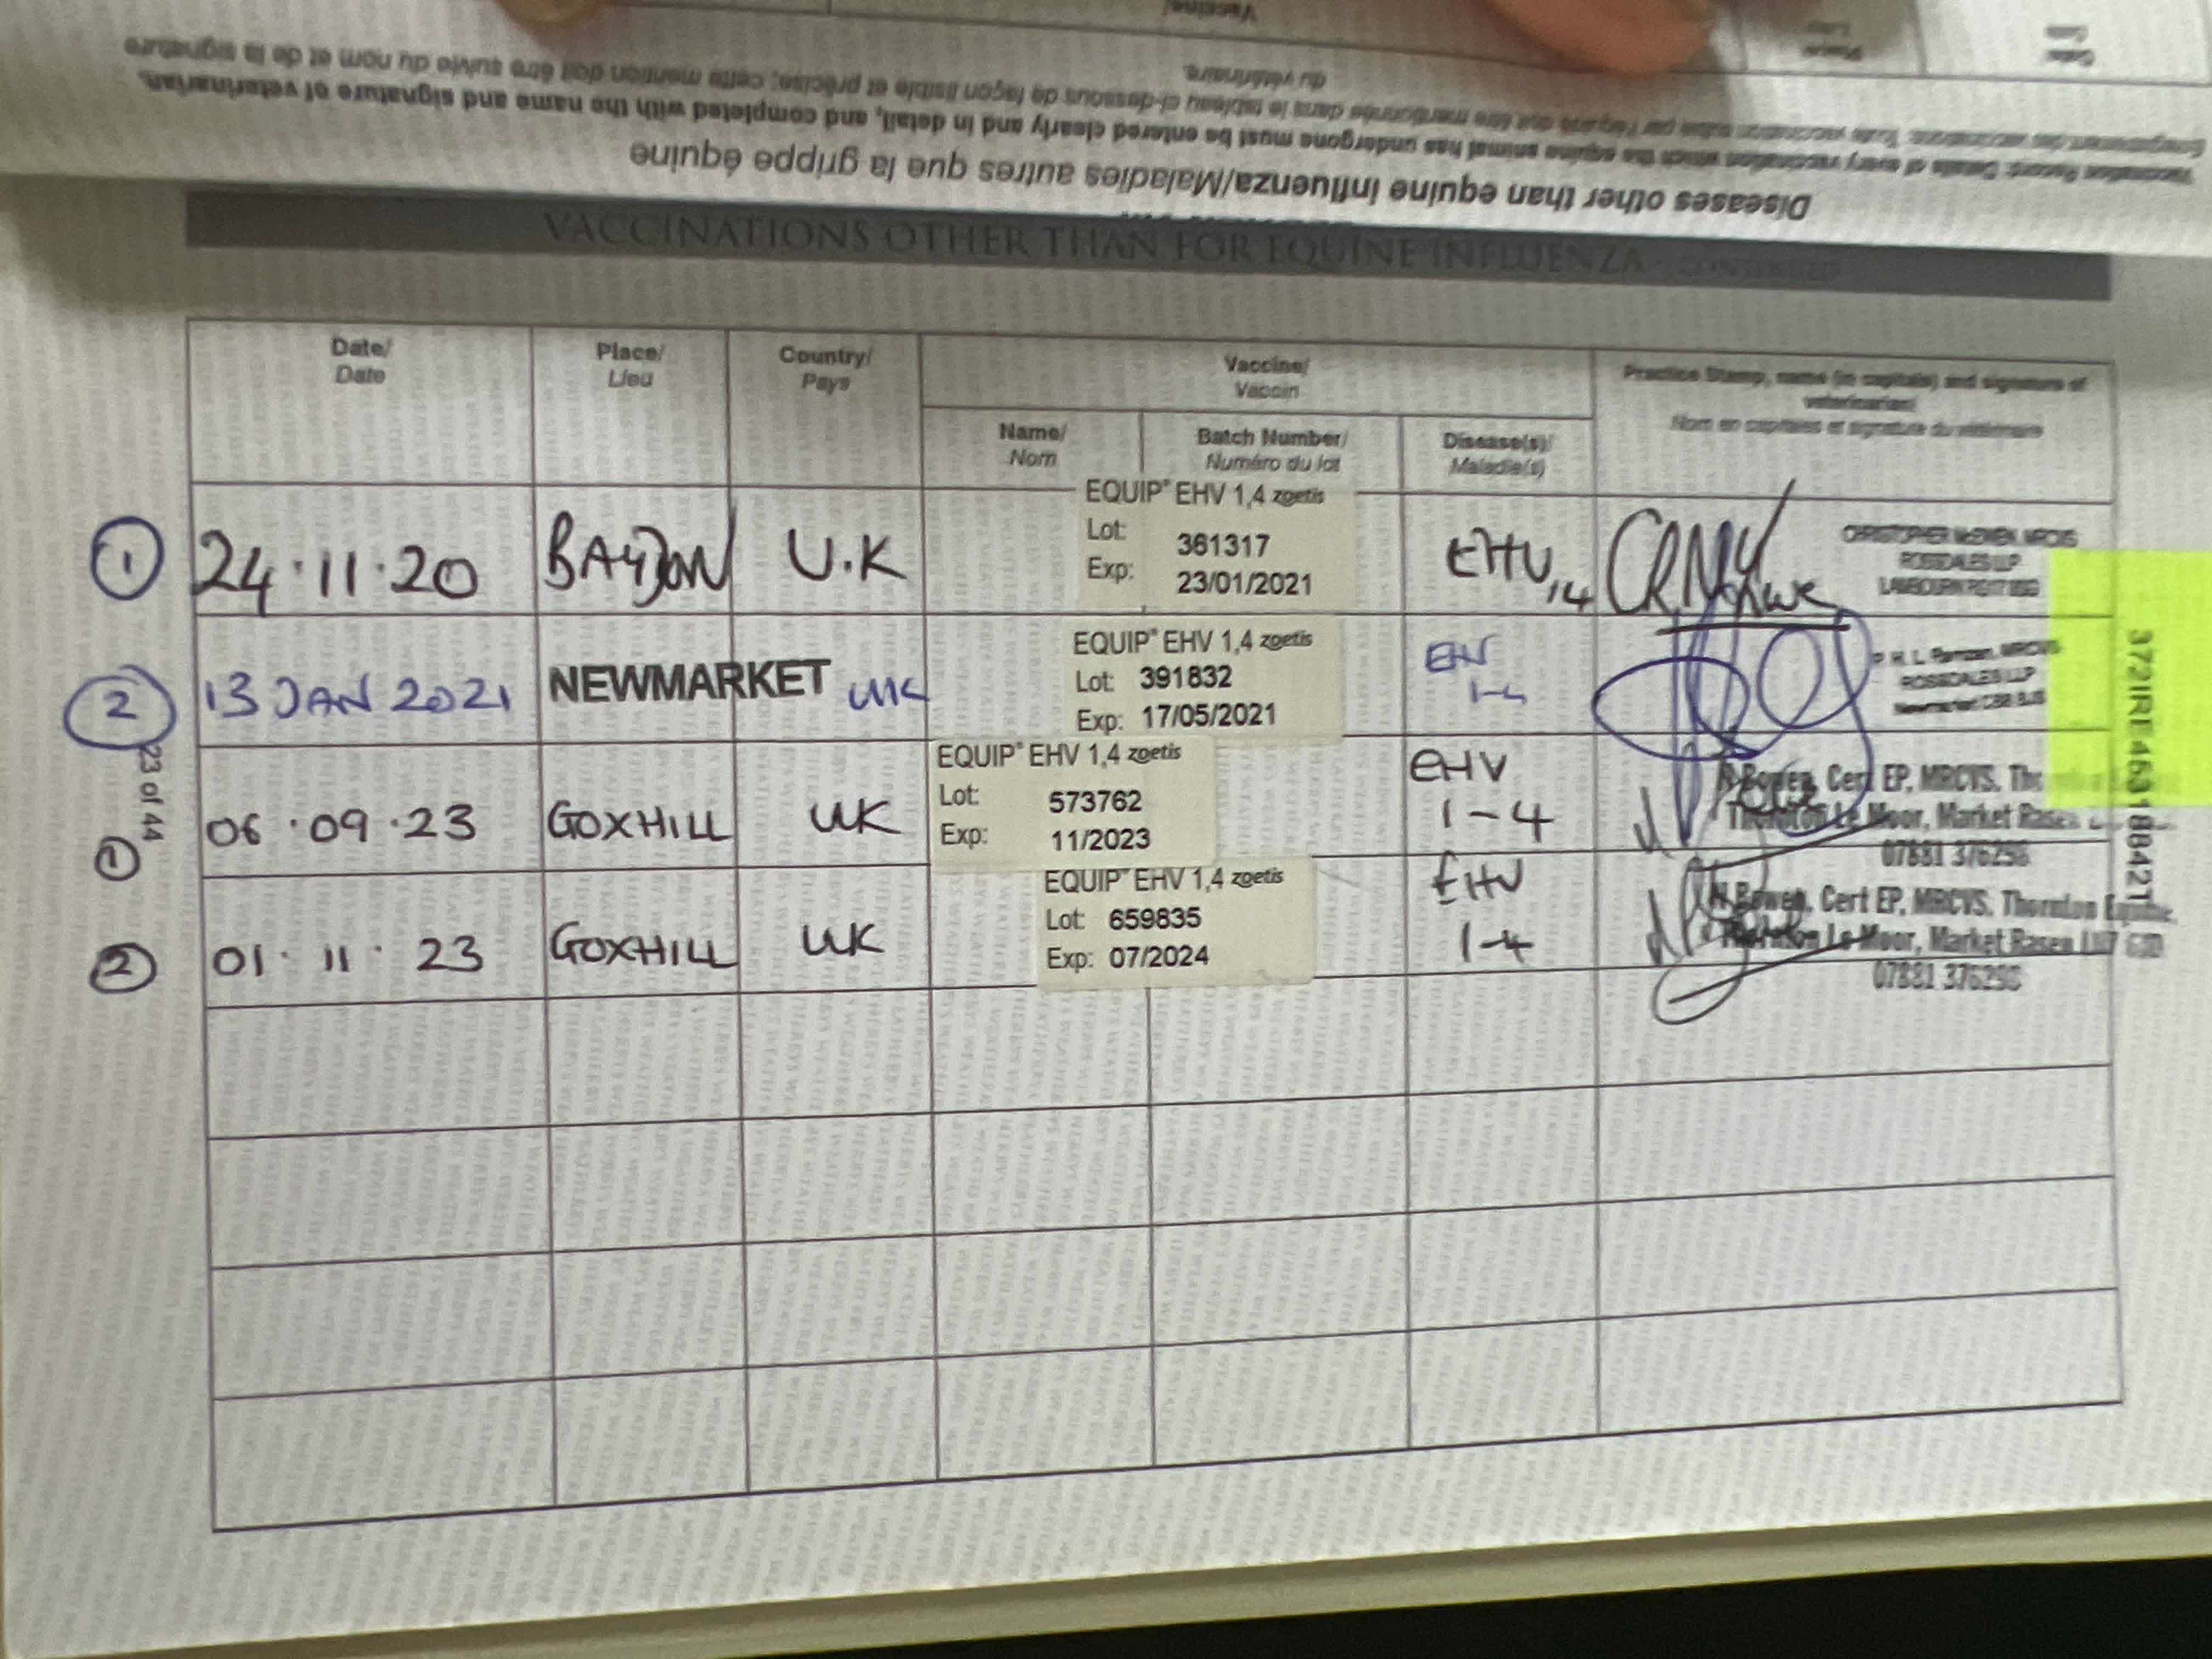 Diseases other than equine influenza/Maladies autres que la grippe équine
Vaccination Record: Details of every vaccination which the equine animal has undergone must be entered clearly and in detail, and completed with the name and signature of veterinarian.
Enregistrement des vaccinations: Toute vaccination subie par l'équidé doit être mentionnée dans le tableau ci-dessous de façon lisible et précise; cette mention doit être suivie du nom et de la signature
du vétérinaire.
Vaccine/
VACCINATIONS OTHER THAN FOR EQUINE INFLUENZA - CONTINUED
Date/
Date
Place/
Lieu
Country/
Pays
Vaccine/
Vaccin
Practice Stamp, name (in capitals) and signature of
veterinarian/
Nom en capitales et signature du vétérinaire
Name/
Nom
Batch Number/
Numéro du lot
Disease(s)/
Maladie(s)
1 24.11.20 BAYDON U.K
EQUIP EHV 1,4 zoetis
Lot: 361317
Exp: 23/01/2021
EHV 1,4
CHRISTOPHER McEWEN, MRCVS
ROSSDALES LLP
LAMBOURN
2 13 JAN 2021 NEWMARKET UK
EQUIP EHV 1,4 zoetis
Lot: 391832
Exp: 17/05/2021
EHV
1-4
MRCVS
ROSSDALES LLP
Newmarket
1 06.09.23 GOXHILL UK
EQUIP EHV 1,4 zoetis
Lot: 573762
Exp: 11/2023
EHV
1-4
N Bowen, Cert EP, MRCVS, Thornton
Thornton Le Moor, Market Rasen
07881 376298
2 01.11.23 GOXHILL UK
EQUIP EHV 1,4 zoetis
Lot: 659835
Exp: 07/2024
EHV
1-4
N Bowen, Cert EP, MRCVS, Thornton Equine,
Thornton Le Moor, Market Rasen
07881 376298
23 of 44